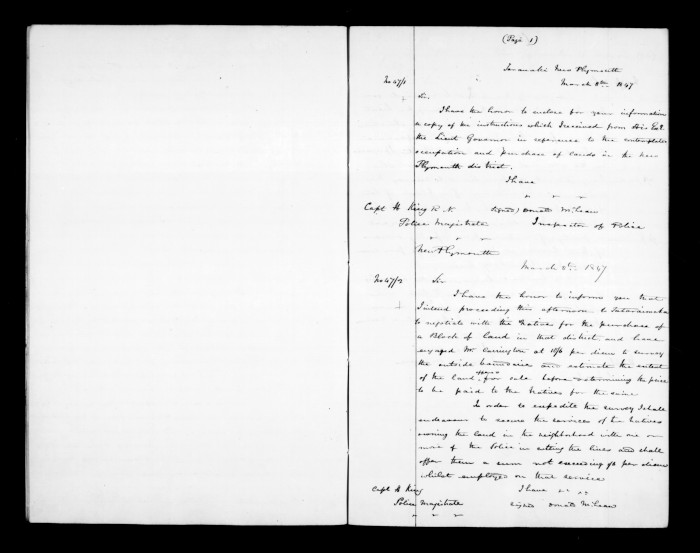 (Page 1)
Taranaki New Plymouth
No 47/1
March 8th 1847
Sir
I have the honor to enclose for your information
a copy of the instructions which I received from His Exl
the Lieut Governor in reference to the contemplated
occupation and purchase of lands in the New
Plymouth district.
I have
" " "
Capt H King R.N. signed) Donald McLean
Police Magistrate Inspector of Police
" " "
New Plymouth
March 1847
No 47/2 Sir
I have the honor to inform you that
I intend proceeding this afternoon to Tataraimaka
to negotiate with the Natives for the purchase of
a Block of land in that district and have
engaged Mr Carrington at 10/6 per diem to survey
the outside boundaries and estimate the extent
of the land offered for sale before determining the price
to be paid to the Natives for the same
In order to expedite the survey I shall
endeavour to secure the services of the natives
owning the land in the neighborhood with one or
more of the Police in cutting the lines and shall
offer them a sum not exceeding per diem
whilst employed on that service
Capt H King I have " "
Police Magistrate signed Donald McLean
" " "